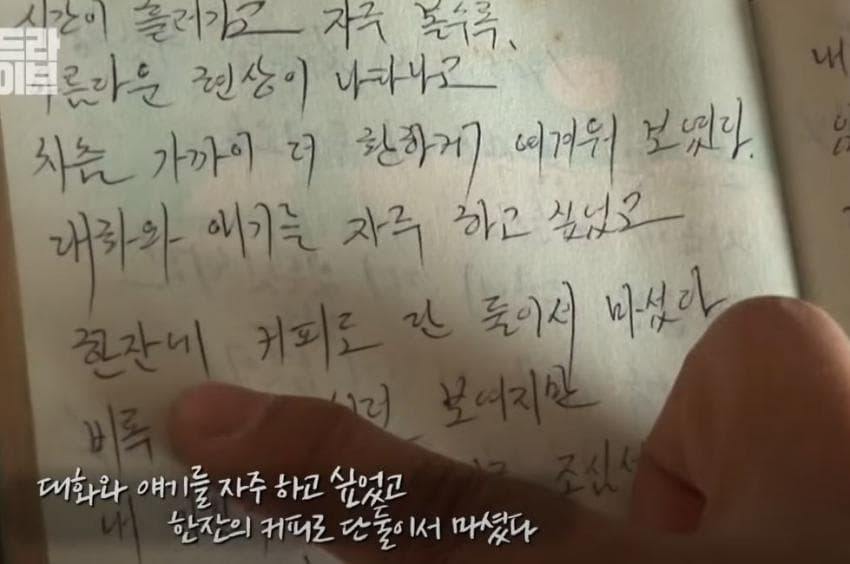 시간이 흘러가고 자주 볼수록,
드라
이브
아름다운 현상이 나타나고
차츰 가까이 더 환하게 여겨워 보였다.
대화와 얘기를 자주 하고 싶었고
한잔네 커피도 단 둘이서 마셨다
비록 보여지만
조심성
내
대화와 얘기를 자주 하고 싶었고
한잔의 커피로 단둘이서 마셨다
내